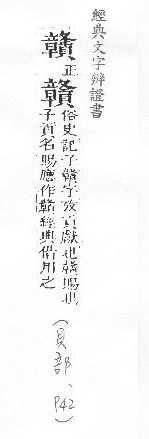 經典文字辨證書
贛正贛俗史記子贛字攷貢獻也贛賜也
子貢名賜應作贛經典借用之
(貝部、P42)